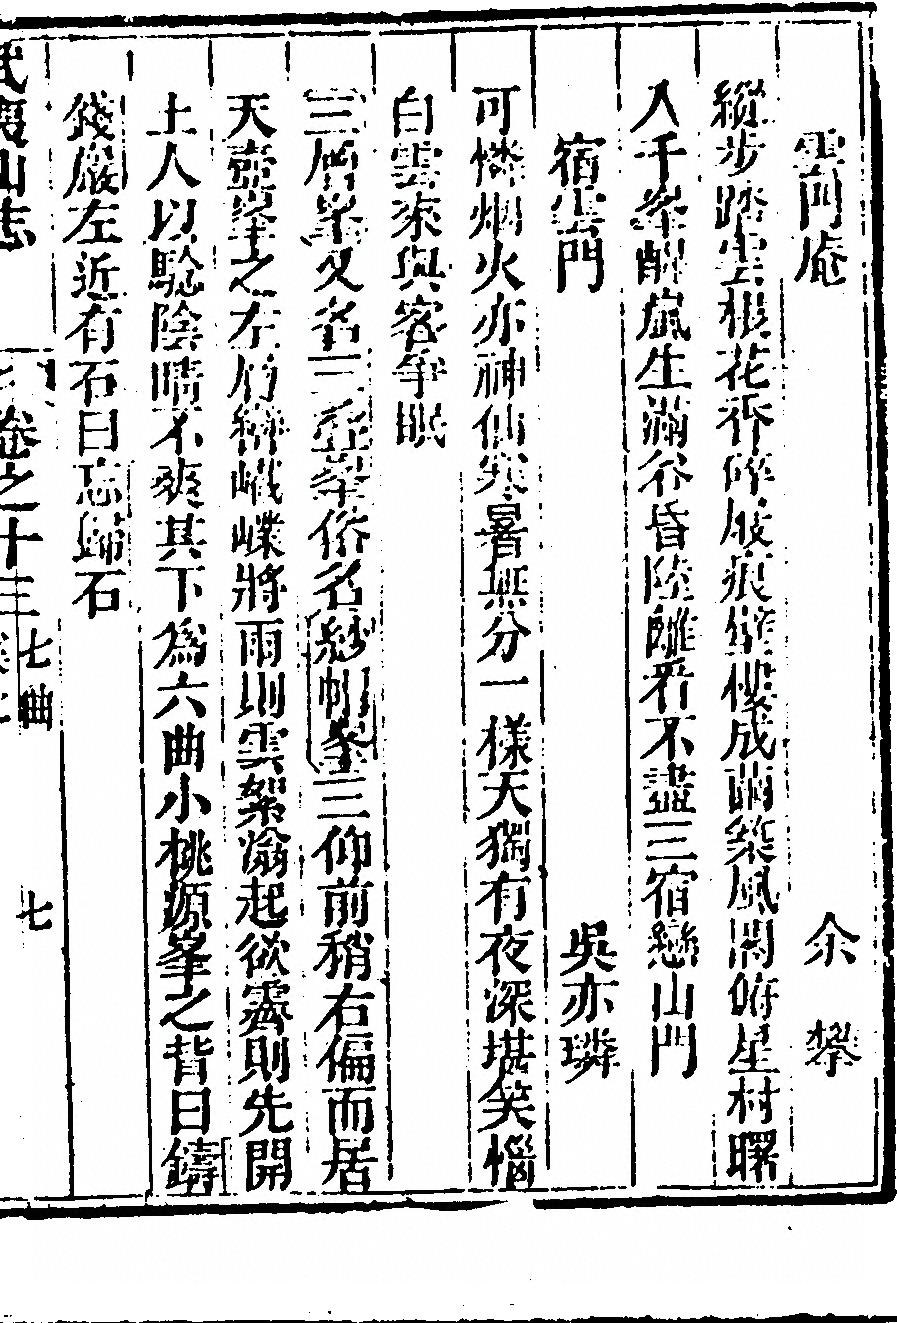 雲門庵　余　攀
縱步踏雲根花香碎屐痕壁樓成繭築風閣俯星村曙
入千峯醒嵐生滿谷昏陸離看不盡三宿戀山門
宿雲門　吳亦璘
可憐烟火亦神仙寒暑無分一樣天獨有夜深堪笑惱
白雲來與客爭眠
三層峯又名三亞峯俗名紗帽峯三仰前稍右偏而居
天壺峯之左層巒嶬嶫將雨則雲絮滃起欲霽則先開
土人以驗陰晴不爽其下為六曲小桃源峯之背曰鑄
錢巖左近有石曰忘歸石
武夷山志　卷之十三　七曲　七